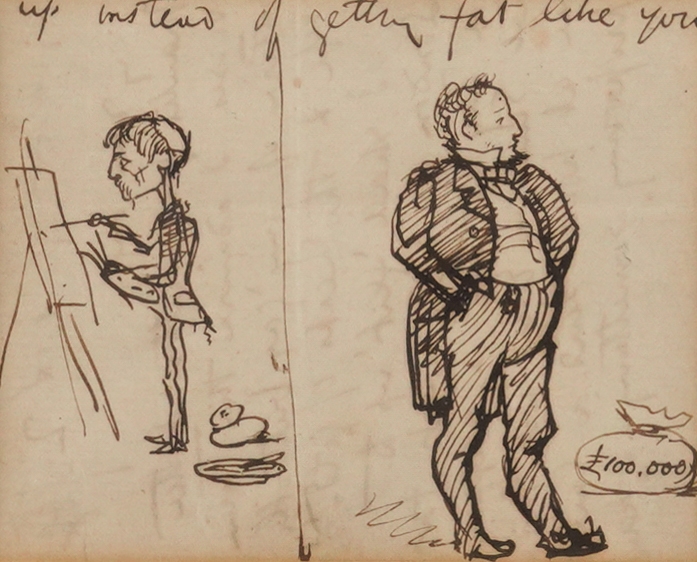 up instead of getting fat like you
£100,000